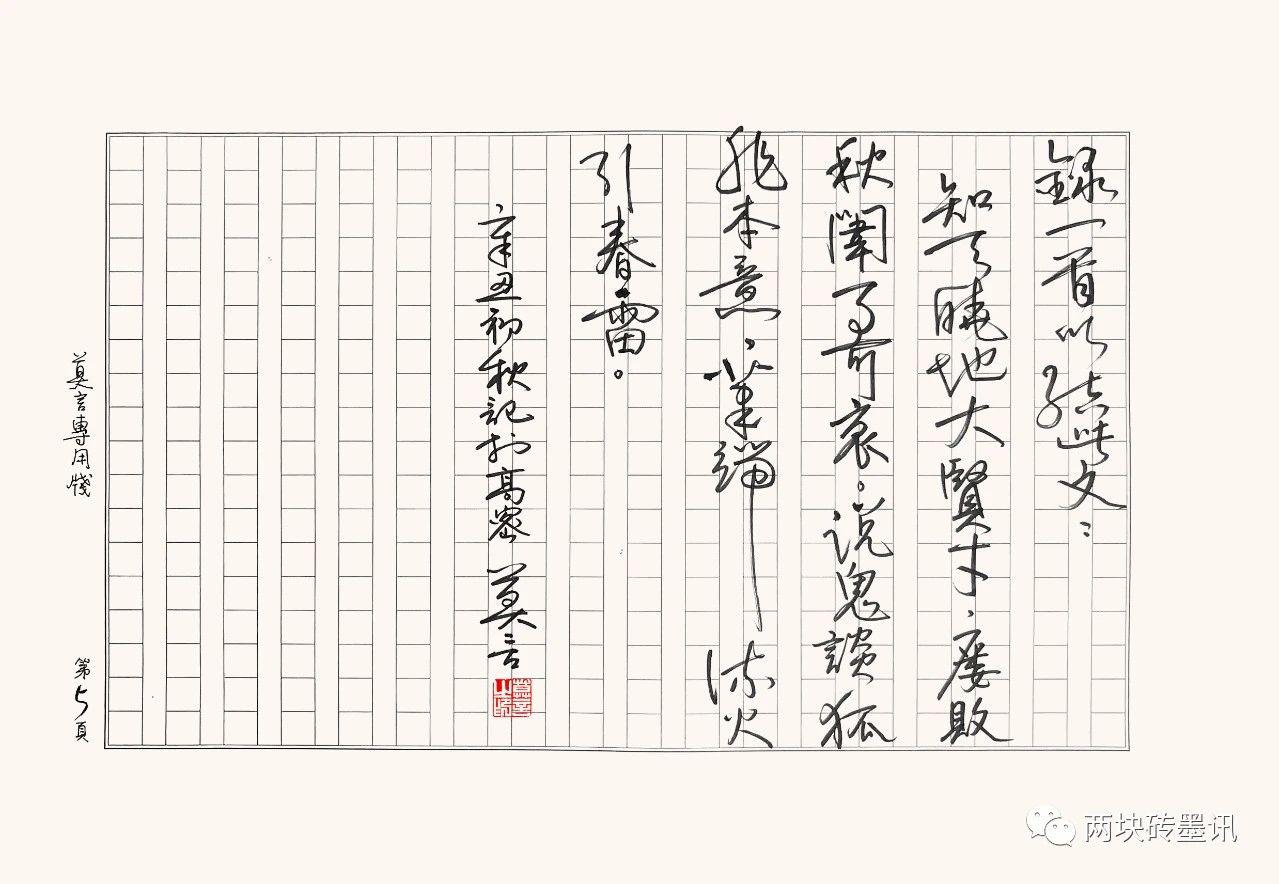 録一首以結此文：
知天曉地大賢才，屡敗
秋闈事可哀。说鬼談狐
非本意，筆端流火
引春雷。
辛丑初秋記於高密 莫言
莫言專用牋
第5頁
两块砖墨讯